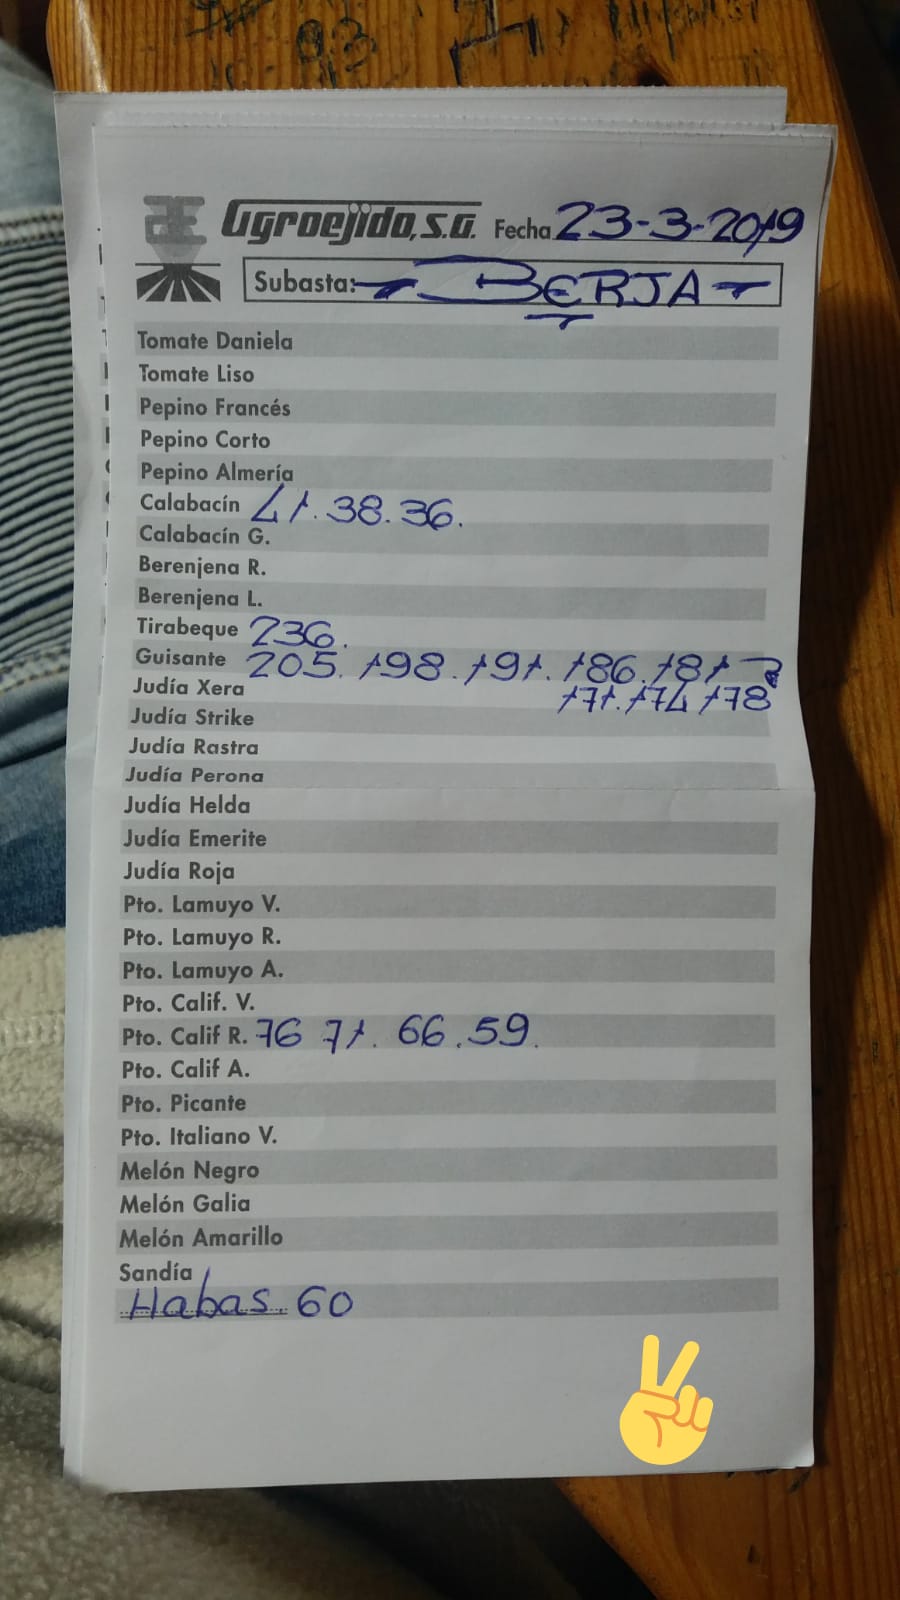 Agroejido, S.A. Fecha 23-3-2019
Subasta: BERJA
Tomate Daniela
Tomate Liso
Pepino Francés
Pepino Corto
Pepino Almería
Calabacín 41. 38. 36.
Calabacín G.
Berenjena R.
Berenjena L.
Tirabeque 236.
Guisante 205. 198. 191. 186. 181
171. 174 178
Judía Xera
Judía Strike
Judía Rastra
Judía Perona
Judía Helda
Judía Emerite
Judía Roja
Pto. Lamuyo V.
Pto. Lamuyo R.
Pto. Lamuyo A.
Pto. Calif. V.
Pto. Calif R. 76 71. 66. 59.
Pto. Calif A.
Pto. Picante
Pto. Italiano V.
Melón Negro
Melón Galia
Melón Amarillo
Sandía
Habas 60